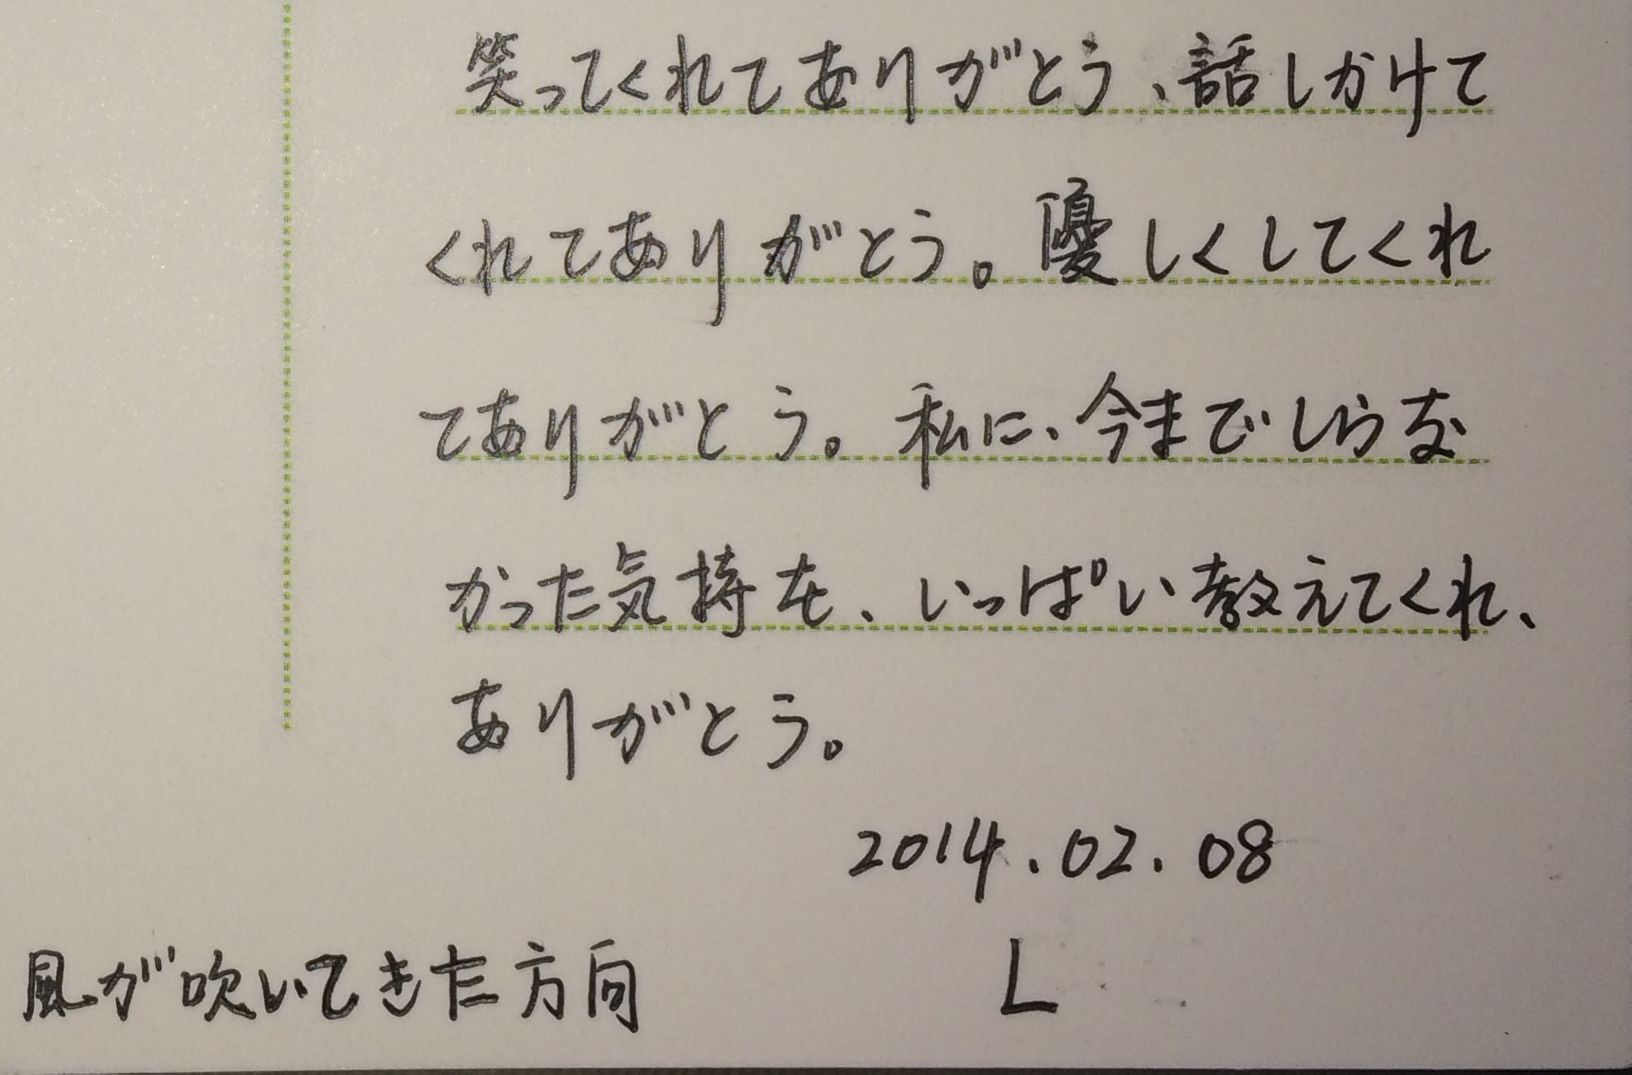 笑ってくれてありがとう、話しかけて
くれてありがとう。優しくしてくれ
てありがとう。私に、今までしらな
かった気持を、いっぱい教えてくれ、
ありがとう。
2014.02.08
風が吹いてきた方向
L